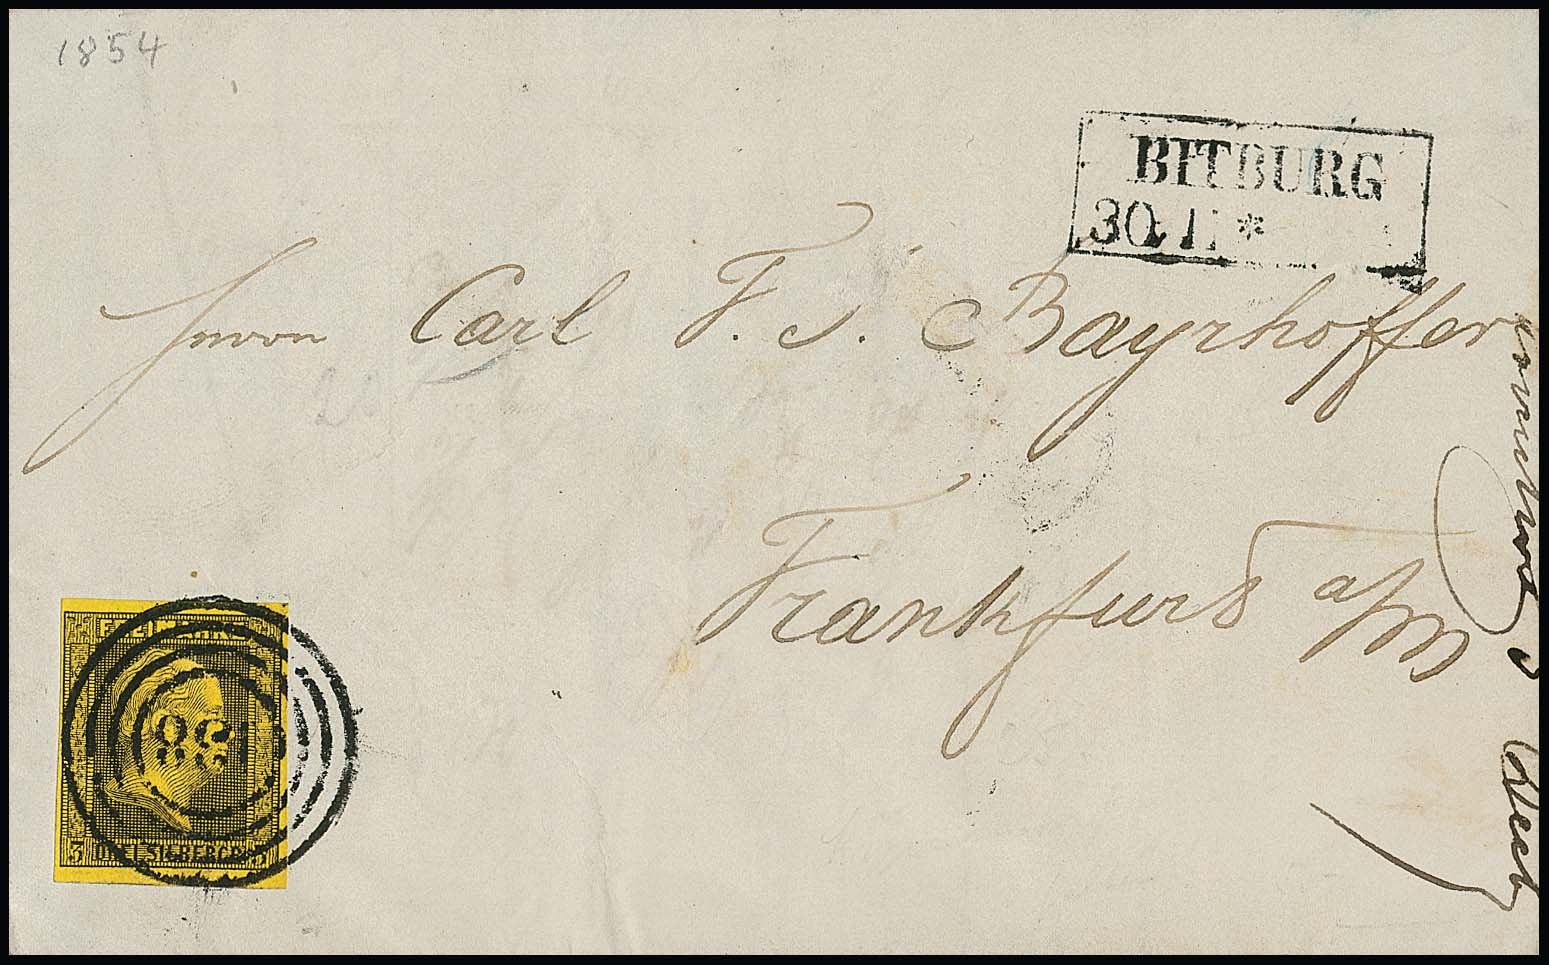 1854
BITBURG
30 11 *
Herrn Carl F. J. Bayrhoffer
Frankfurt a/M
FREIMARKE
138
3 DREI SILBERGR. 3